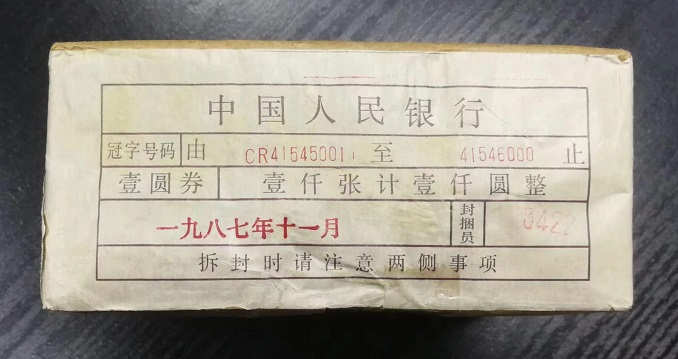 中国人民银行
冠字号码 由 CR41545001 至 41546000 止
壹圆券 壹仟张计壹仟圆整
一九八七年十一月 封捆员 3422
拆封时请注意两侧事项